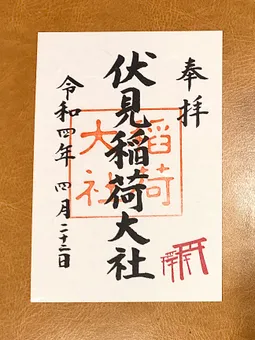 奉拝
伏見稲荷大社
稲荷
大社
令和四年 四月二十二日